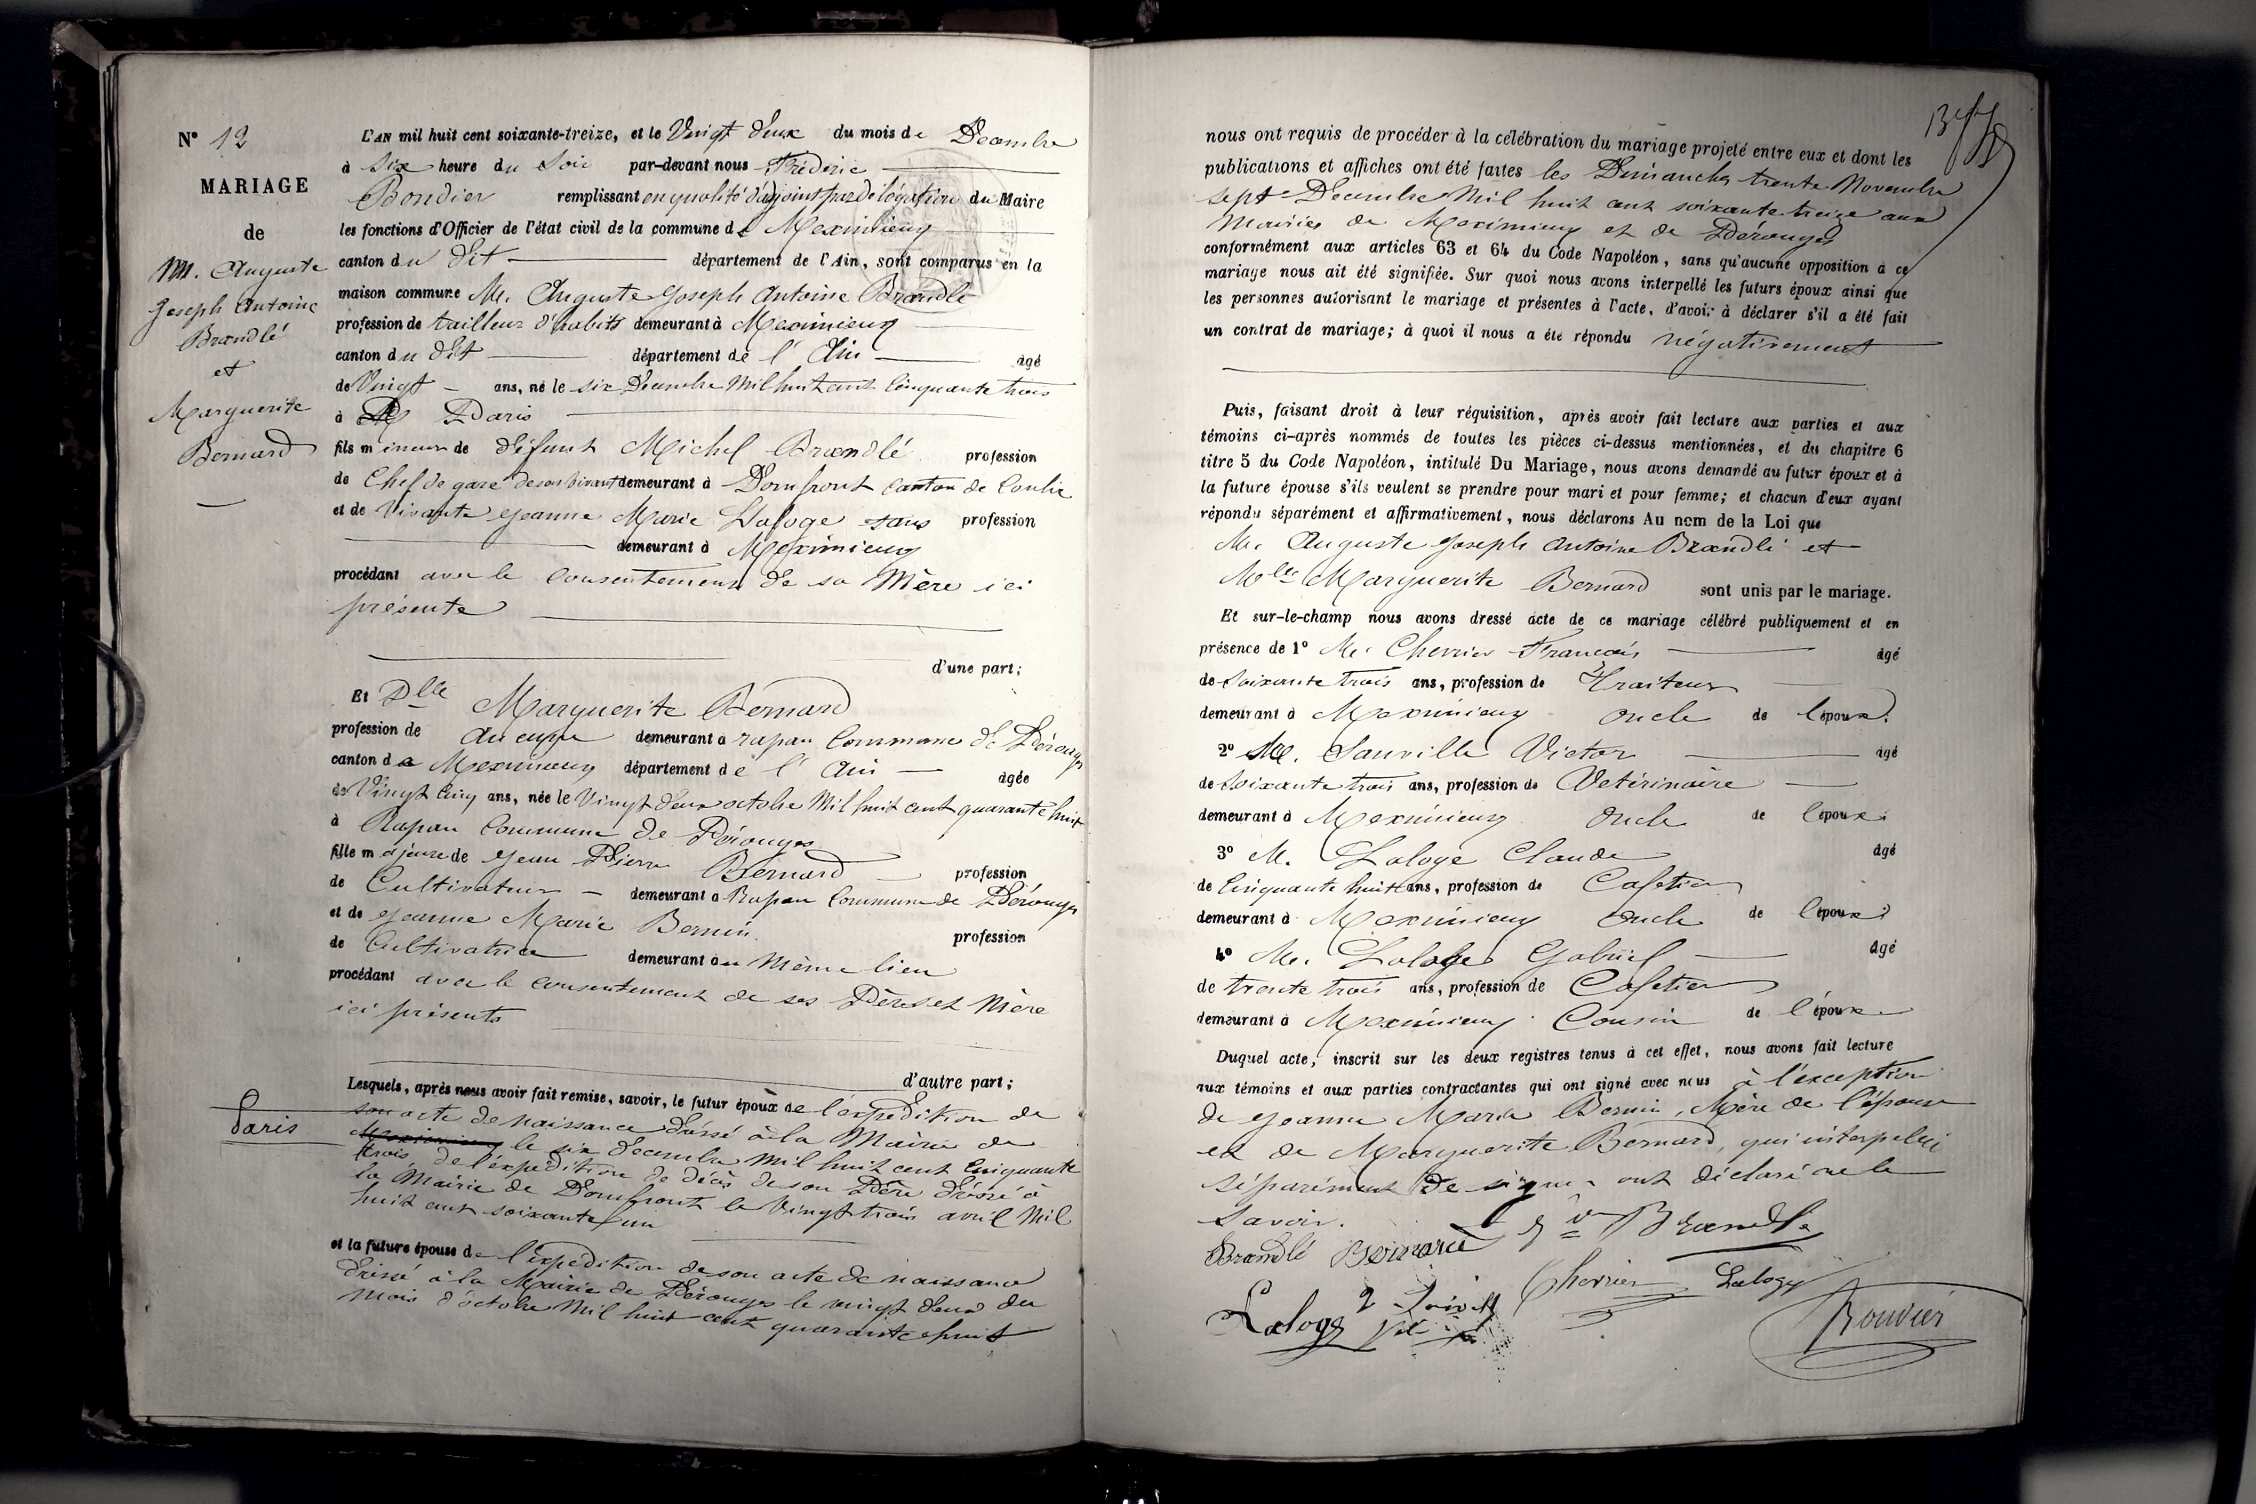 N° 12
MARIAGE
de
M. Auguste
Joseph Antoine
Brandlé
et
Marguerite
Bernard
L'AN mil huit cent soixante-treize, et le Vingt deux du mois de Decembre
à six heure du Soir par-devant nous Fréderic
remplissant en qualité d'adjoint par délégation du Maire
les fonctions d'Officier de l'état civil de la commune de Meximieux
canton du dit département de l'Ain, sont comparus en la
maison commune M. Auguste Joseph Antoine Brandlé
profession de tailleur d'habits demeurant à Meximieux
canton du dit département de l'Ain âgé
de Vingt ans, né le six Decembre Mil huit cent Cinquante trois
à Paris
fils mineur de défunt Michel Brandlé profession
de Chef de gare de son vivant demeurant à Domfront Canton de Conlie
et de Vivante Jeanne Marie Laloge sans profession
demeurant à Meximieux
procédant avec le Consentement de sa Mère ici
présente
d'une part;
Et Dlle Marguerite Bernard
profession de Aucune demeurant à rapan Commune de Pérouges
canton de Meximieux département de l'Ain âgée
de Vingt Cinq ans, née le Vingt deux octobre Mil huit cent quarante huit
à Rapan Commune de Pérouges
fille majeure de Jean Pierre Bernard profession
de Cultivateur demeurant à Rapan Commune de Pérouges
et de Jeanne Marie Bernin profession
de Cultivatrice demeurant au Même lieu
procédant avec le consentement de ses Père et Mère
ici présents
d'autre part;
Lesquels, après nous avoir fait remise, savoir, le futur époux de l'expédition de
son acte de naissance dréssé à la Mairie de
Paris
Meximieux le six decembre Mil huit cent Cinquante
trois de l'expédition de décès de son Père dréssé à
la Mairie de Domfront le Vingt trois avril Mil
huit cent soixante un
et la future épouse de l'expédition de son acte de naissance
dréssé à la Mairie de Pérouges le vingt deux du
mois d'octobre Mil huit cent quarante huit
nous ont requis de procéder à la célébration du mariage projeté entre eux et dont les
publications et affiches ont été faites les Dimanches trente Novembre
sept Decembre Mil huit cent soixante treize aux
Mairies de Meximieux et de Pérouges
conformément aux articles 63 et 64 du Code Napoléon, sans qu'aucune opposition à ce
mariage nous ait été signifiée. Sur quoi nous avons interpellé les futurs époux ainsi que
les personnes autorisant le mariage et présentes à l'acte, d'avoir à déclarer s'il a été fait
un contrat de mariage; à quoi il nous a été répondu négativement
Puis, faisant droit à leur réquisition, après avoir fait lecture aux parties et aux
témoins ci-après nommés de toutes les pièces ci-dessus mentionnées, et du chapitre 6
titre 5 du Code Napoléon, intitulé Du Mariage, nous avons demandé au futur époux et à
la future épouse s'ils veulent se prendre pour mari et pour femme; et chacun d'eux ayant
répondu séparément et affirmativement, nous déclarons Au nom de la Loi que
M. Auguste Joseph Antoine Brandlé et
Mlle Marguerite Bernard sont unis par le mariage.
Et sur-le-champ nous avons dressé acte de ce mariage célébré publiquement et en
présence de 1° M. Cherrier Francois âgé
de Soixante trois ans, profession de Traiteur
demeurant à Meximieux oncle de l'époux.
2° M. Victor âgé
de Soixante trois ans, profession de Vetérinaire
demeurant à Meximieux oncle de l'époux.
3° M. Laloge Claude âgé
de Cinquante huit ans, profession de Cafetier
demeurant à Meximieux oncle de l'époux.
4° M. Laloge Gabriel âgé
de trente trois ans, profession de Cafetier
demeurant à Meximieux Cousin de l'époux
Duquel acte, inscrit sur les deux registres tenus à cet effet, nous avons fait lecture
aux témoins et aux parties contractantes qui ont signé avec nous à l'exception
de Jeanne Marie Bernin, Mère de l'épouse
et de Marguerite Bernard, qui interpellées
séparément de signer ont déclaré ne le
Savoir.
Brandlé Bernard Ve Brandlé
Cherrier Laloge
Laloge